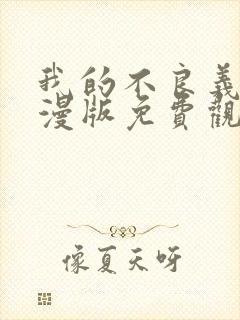 我的不良義
漫版免費觀
像夏天呀